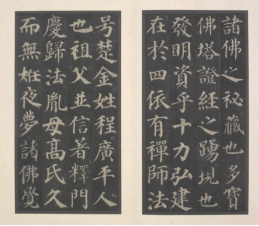 諸佛之秘藏也多寶
佛塔證經之踴現也
發明資乎十力弘建
在於四依有禪師法
号楚金姓程廣平人
也祖父並信著釋門
慶歸法胤母髙氏久
而無妊夜夢諸佛覺